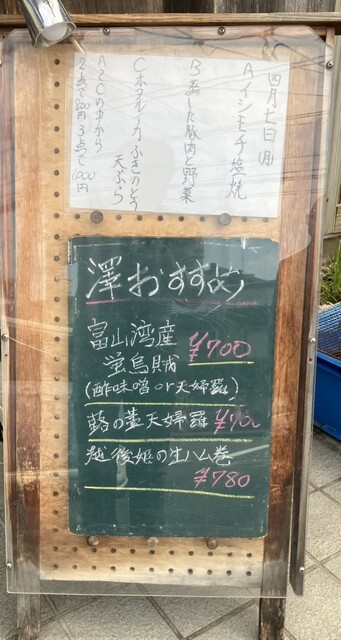 四月七日(月)
Aイシモチ塩焼
B蒸した豚肉と野菜
Cホタルイカ ふきのとう
天ぷら
A〜Cの中から
2点で800円 3点で1,000円
澤おすすめ
富山湾産
蛍烏賊 ¥700
(酢味噌or天婦羅)
蕗の薹天婦羅
越後姫の生ハム巻
¥780